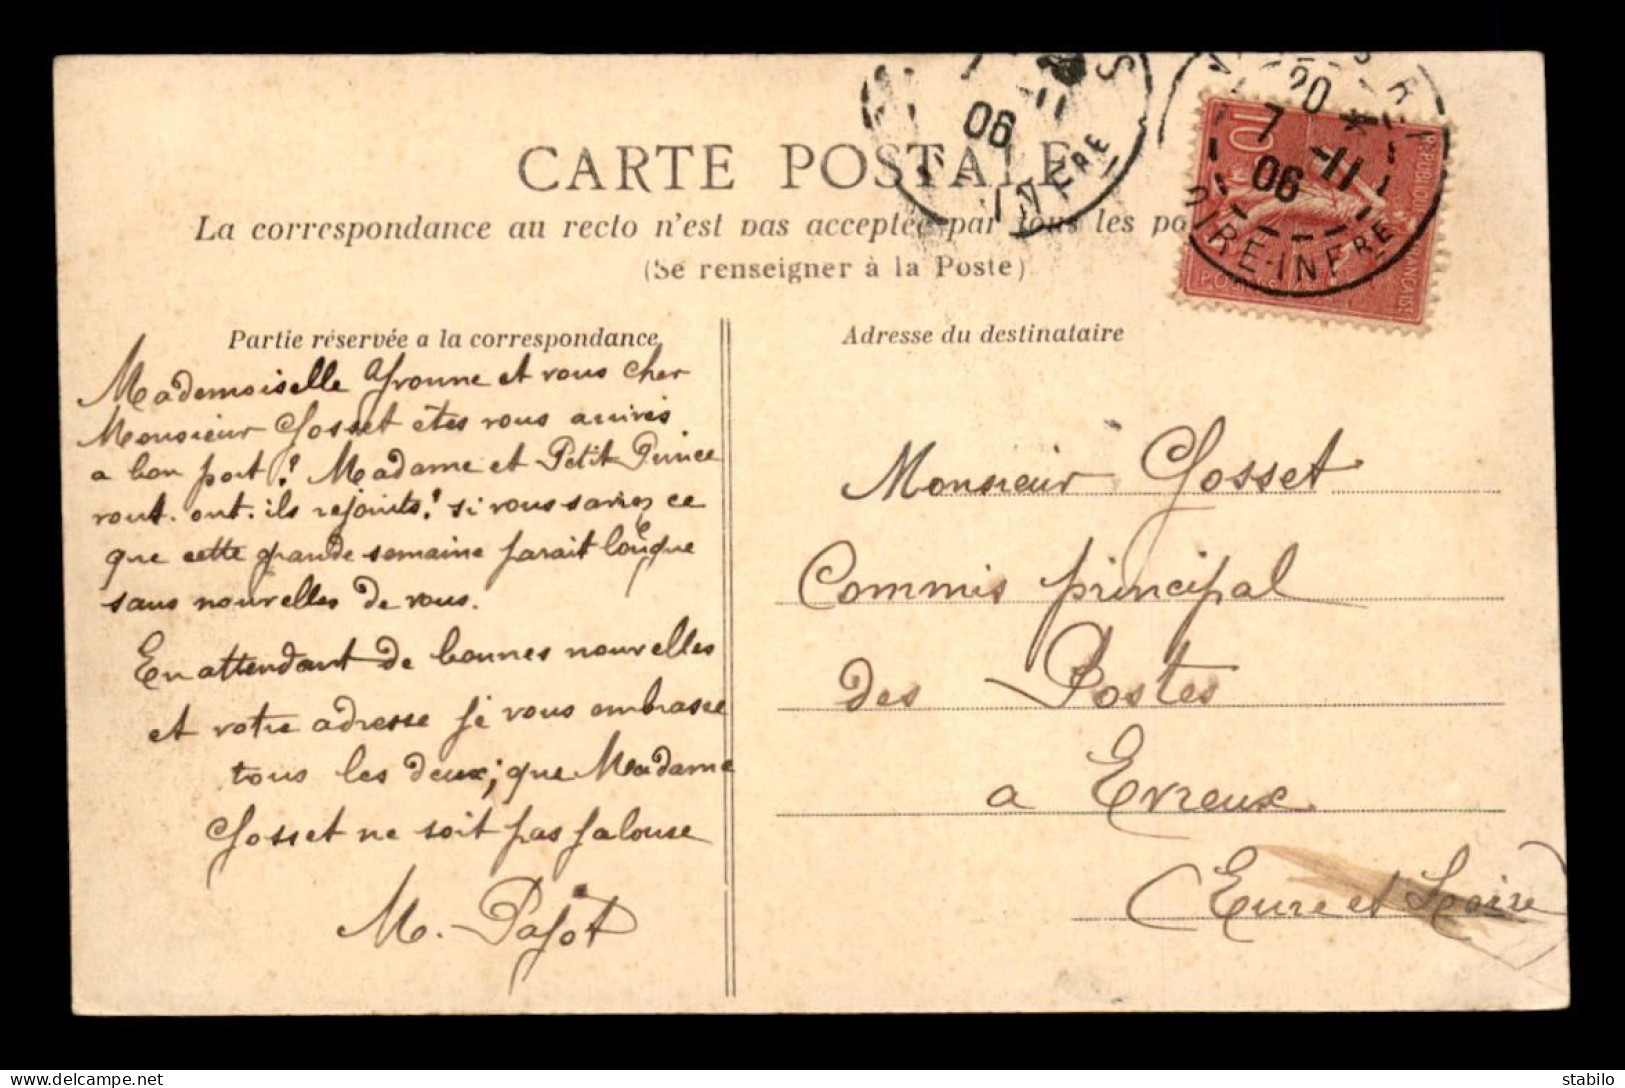 CARTE POSTALE
La correspondance au recto n'est pas acceptée par tous les po
(Se renseigner à la Poste)
Partie réservée a la correspondance
Mademoiselle Yvonne et vous cher
Monsieur Gosset êtes vous arrivés
a bon port? Madame et Petit Prince
vont. ont. ils rejoints? si vous saviez ce
que cette grande semaine parait longue
sans nouvelles de vous.
En attendant de bonnes nouvelles
et votre adresse je vous embrasse
tous les deux; que Madame
Gosset ne soit pas jalouse
M. Pajot
Adresse du destinataire
Monsieur Gosset
Commis principal
des Postes
a Evreux
(Eure et Loire)
06 11
INFRE
20
7 -11
06
OIRE-INFRE
10
delcampe.net
stabilo